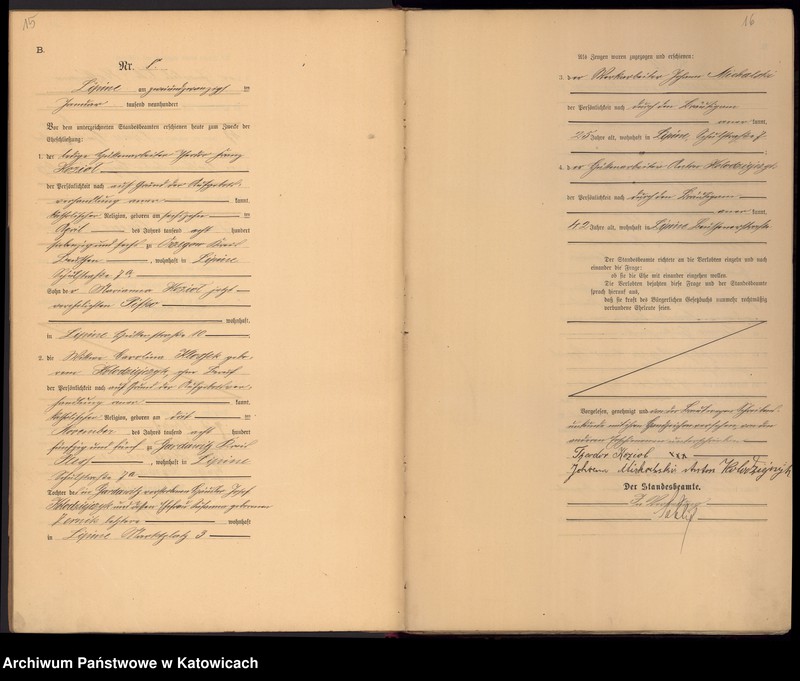 15
B.
Nr.
Lipine am zweiundzwanzigsten
Januar tausend neunhundert
Vor dem unterzeichneten Standesbeamten erschienen heute zum Zwecke der
Eheschließung:
1. der ledige Hüttenarbeiter Theodor Franz
Koziol
der Persönlichkeit nach auf Grund der Aufgebots-
verhandlung aner- kannt,
katholischer Religion, geboren am
April des Jahres tausend acht hundert
siebenzig und sechs zu Kreis
Beuthen, wohnhaft in Lipine
Schulstraße 7a
Sohn der Marianna Koziol jetzt
verehelichten
wohnhaft
in Lipine Hüttenstraße 10
2. die Witwe Carolina gebo-
rene Kolodziejczyk, ohne Beruf
der Persönlichkeit nach auf Grund der Aufgebotsver-
handlung aner- kannt,
katholischer Religion, geboren am
November des Jahres tausend acht hundert
fünfzig und fünf zu Gardawitz Kreis
Pless, wohnhaft in Lipine
Schulstraße 7a
Tochter des in Gardawitz verstorbenen Josef
Kolodziejczyk und dessen Ehefrau Susanna geborenen
letztere wohnhaft
in Lipine Marktplatz 3
16
Als Zeugen waren zugezogen und erschienen:
3. der Werkarbeiter Johann Michalski
der Persönlichkeit nach durch den Bräutigam
aner- kannt,
25 Jahre alt, wohnhaft in Lipine, Schulstraße
4. der Hüttenarbeiter Anton Kolodziejczyk
der Persönlichkeit nach durch den Bräutigam
aner- kannt,
42 Jahre alt, wohnhaft in Lipine Beuthenerstraße
Der Standesbeamte richtete an die Verlobten einzeln und nach
einander die Frage:
ob sie die Ehe mit einander eingehen wollen.
Die Verlobten bejahten diese Frage und der Standesbeamte
sprach hierauf aus,
daß sie kraft des Bürgerlichen Gesetzbuchs nunmehr rechtmäßig
verbundene Eheleute seien.
Vorgelesen, genehmigt und von der Braut wegen Schreibens-
unkunde mit ihrem Handzeichen versehen, von den
anderen Erschienenen unterschrieben
Theodor Koziol xxx
Johann Michalski Anton Kolodziejczyk
Der Standesbeamte.
In Vertretung
Archiwum Państwowe w Katowicach